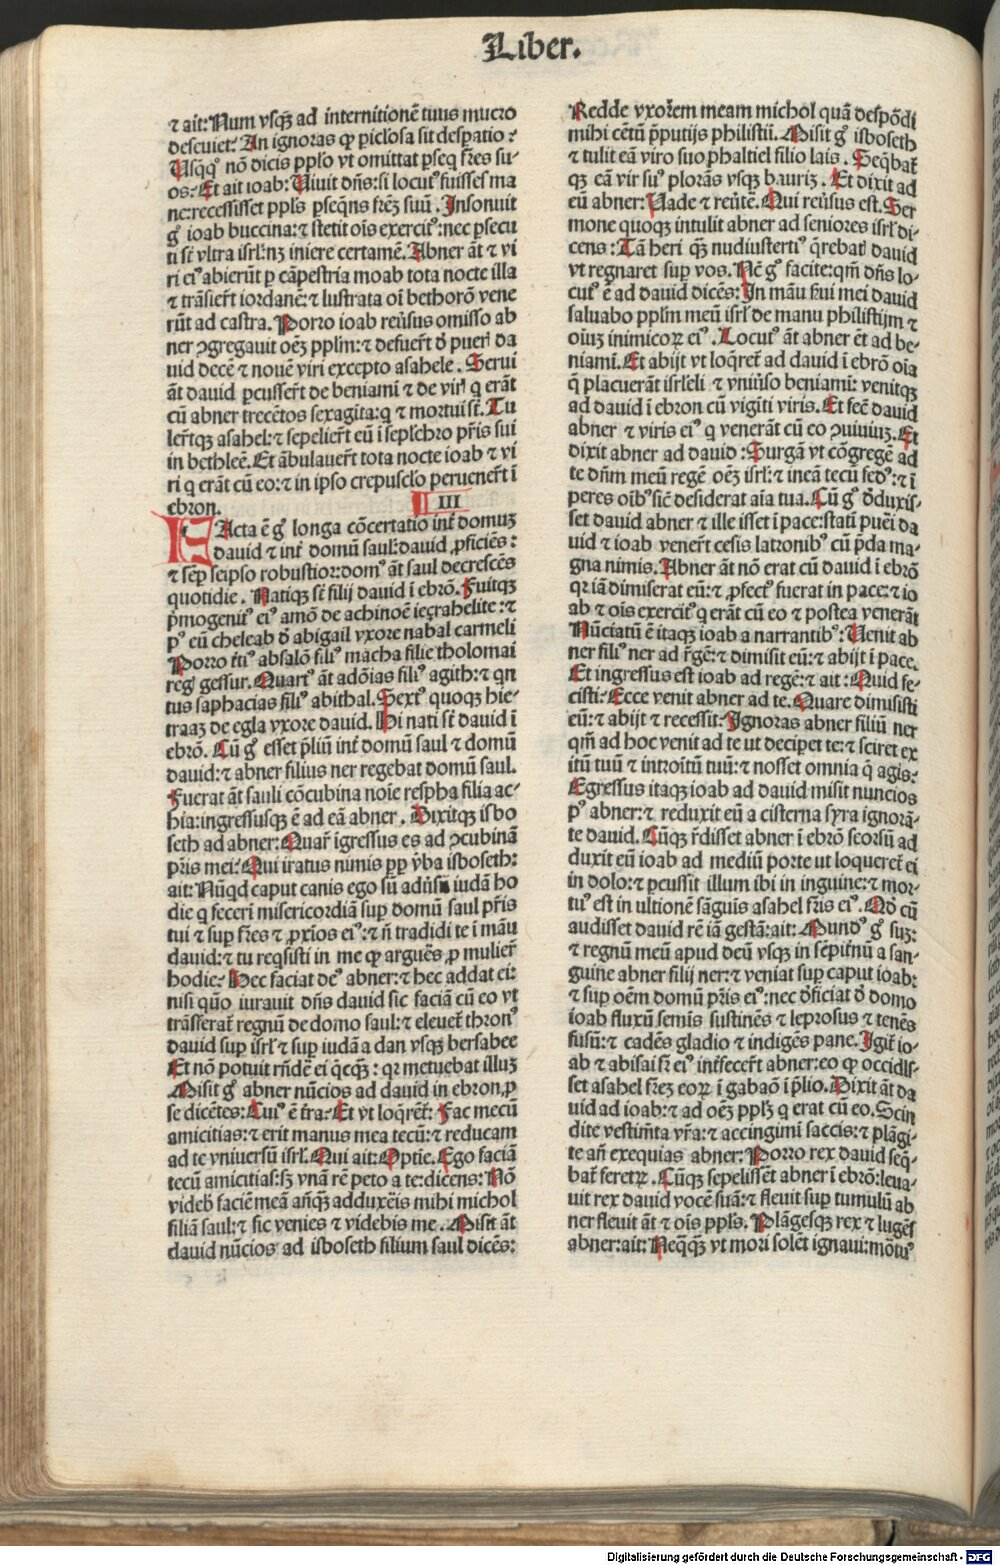 Liber.
⁊ ait: Num vsqꝫ ad internitionē tuus mucro
deseuiet? An ignoras qꝙ piclosa sit despatio?
Usq̄qꝰ nō dicis pplo vt omittat pseq fr̄es su-
os? Et ait ioab: Uiuit dn̄s: si locutꝰ fuisses ma
ne: recessisset ppl̄s pseq̄ns fr̄eꝫ suū. Insonuit
gͦ ioab buccina: ⁊ stetit ois exercitꝰ: nec psecu
ti st̄ vltra isrl̄: nꝫ iniere certamē. Abner āt ⁊ vi
ri eiꝰ abierūt p cāpestria moab tota nocte illa
⁊ trāsier̄t iordanē: ⁊ lustrata oī bethorō vene
rūt ad castra. Porro ioab reūsus omisso ab
ner ꝯgregauit oēꝫ pplm̄: ⁊ defuer̄t d̄ pueri da
uid decē ⁊ nouē viri excepto asahele. Serui
āt dauid pcusser̄t de beniamī ⁊ de viri q erāt
cū abner trecētos sexagīta: q ⁊ mortui st̄. Tu
ler̄tqꝫ asahel: ⁊ sepelier̄t eū ī sepl̄chro pr̄is sui
in bethleē. Et ābulauer̄t tota nocte ioab ⁊ vi
ri q erāt cū eo: ⁊ in ipso crepusclo peruener̄t ī
ebron. III
FActa ē gͦ longa cōcertatio int̄ domuꝫ
dauid ⁊ int̄ domū saul: dauid ꝓficiēs:
⁊ sēp seipso robustior: domꝰ āt saul decrescēs
quotidie. Natiqꝫ st̄ filij dauid ī ebrō. Fuitqꝫ
p̄mogenitꝰ eiꝰ amō de achinoē ieçrahelite: ⁊
pꝰ eū cheleab d̄ abigail vxore nabal carmeli
Porro t̄tiꝰ absalō filiꝰ macha filie tholomai
regꝭ gessur. Quartꝰ āt adōias filiꝰ agith: ⁊ qn
tus saphacias filiꝰ abithal. Sextꝰ quoqꝫ hie-
traaꝫ de egla vxore dauid. Hi nati st̄ dauid ī
ebrō. Cū gͦ esset p̄liū int̄ domū saul ⁊ domū
dauid: ⁊ abner filius ner regebat domū saul.
Fuerat āt sauli cōcubina noīe respha filia ac-
hia: ingressusqꝫ ē ad eā abner. Dixitqꝫ isbo
seth ad abner: Quar̄ īgressus es ad ꝯcubinā
pr̄is mei? Qui iratus nimis pp v̄ba isboseth:
ait: Nūqd caput canis ego sū adūsū iudā ho
die q feceri misericordiā sup domū saul pr̄is
tui ⁊ sup fr̄es ⁊ ꝓxīos eiꝰ: ⁊ n̄ tradidi te ī māu
dauid: ⁊ tu reqsisti in me qꝙ arguēs ꝓ mulier̄
hodie? Hec faciat deꝰ abner: ⁊ hec addat ei:
nisi quō iurauit dn̄s dauid sic faciā cū eo vt
trāsferat̄ regnū de domo saul: ⁊ eleuet̄ thronꝰ
dauid sup isrl̄ ⁊ sup iudā a dan vsqꝫ bersabee
Et nō potuit rn̄dē ei q̄cqꝫ: qr metuebat illuꝫ
Misit gͦ abner nūcios ad dauid in ebron ꝓ
se dicētes: Cuiꝰ ē tr̄a? Et vt loqr̄et̄: Fac mecū
amicitias: ⁊ erit manus mea tecū: ⁊ reducam
ad te vniuersū isrl̄. Qui ait: Optīe. Ego faciā
tecū amicitias: sꝫ vnā rē peto a te: dicens: Nō
videb̄ faciē meā an̄qꝫ adduxeis mihi michol
filiā saul: ⁊ sic venies ⁊ videbis me. Misit āt
dauid nūcios ad isboseth filium saul dicēs:
Redde vxorem meam michol quā despōdi
mihi cētū p̄putijs philistiī. Misit gͦ isboseth
⁊ tulit eā viro suo phaltiel filio lais. Seq̄bat̄
qꝫ eā vir suꝰ plorās vsqꝫ baurīꝫ. Et dixit ad
eū abner: Uade ⁊ reūtē. Qui reūsus est. Ser
mone quoqꝫ intulit abner ad seniores isrl̄ di-
cens: Tā heri qꝫ nudiustertiꝰ q̄rebati dauid
vt regnaret sup vos. Nc̄ gͦ facite: qm̄ dn̄s lo-
cutꝰ ē ad dauid dicēs: In māu ẜui mei dauid
saluabo pplm̄ meū isrl̄ de manu philistijm ⁊
oīuꝫ inimicoꝝ eiꝰ. Locutꝰ āt abner ēt ad be-
niamī. Et abijt vt loqr̄et̄ ad dauid ī ebrō oīa
q̄ placuerāt isrl̄eli ⁊ vniūso beniamī: venitqꝫ
ad dauid ī ebron cū vigīti viris. Et fec̄ dauid
abner ⁊ viris eiꝰ q venerāt cū eo ꝯuiuiuꝫ. Et
dixit abner ad dauid: Surgā vt cōgregē ad
te dn̄m meū regē oēꝫ isrl̄: ⁊ ineā tecū fedꝰ: ⁊ ī
peres oībꝰ sic̄ desiderat aīa tua. Cū gͦ d̄duxis-
set dauid abner ⁊ ille isset ī pace: statī puēi da
uid ⁊ ioab vener̄t cesis latronibꝰ cū p̄da ma-
gna nimis. Abner āt nō erat cū dauid ī ebrō
qr iā dimiserat eū: ⁊ ꝓfectꝰ fuerat in pace: ⁊ io
ab ⁊ oīs exercitꝰ q erāt cū eo ⁊ postea venerāt
Nūciatū ē itaqꝫ ioab a narrantibꝰ: Uenit ab
ner filiꝰ ner ad r̄gē: ⁊ dimisit eū: ⁊ abijt ī pace.
Et ingressus est ioab ad regē: ⁊ ait: Quid fe-
cisti? Ecce venit abner ad te. Quare dimisisti
eū: ⁊ abijt ⁊ recessit? Ignoras abner filiū ner
qm̄ ad hoc venit ad te ut deciperet te: ⁊ sciret ex
itū tuū ⁊ introitū tuū: ⁊ nosset omnia q̄ agis?
Egressus itaqꝫ ioab ad dauid misit nuncios
pꝰ abner: ⁊ reduxit eū a cisterna syra ignorā-
te dauid. Cūqꝫ r̄disset abner ī ebrō seorsū ad
duxit eū ioab ad mediū porte ut loqueret̄ ei
in dolo: ⁊ pcussit illum ibi in inguine: ⁊ mor-
tuꝰ est in ultionē sāguīs asahel fr̄is eiꝰ. Qd̄ cū
audisset dauid rē iā gestā: ait: Mundꝰ gͦ suꝫ:
⁊ regnū meū apud deū vsqꝫ in sēpit̄nū a san-
guine abner filij ner: ⁊ veniat sup caput ioab:
⁊ sup oēm domū pr̄is eiꝰ: nec d̄ficiat d̄ domo
ioab fluxū semīs sustinēs ⁊ leprosus ⁊ tenēs
fusū: ⁊ cadēs gladio ⁊ indigēs pane. Igit̄ io-
ab ⁊ abisai fr̄ eiꝰ int̄fecer̄t abner: eo qꝙ occidis-
set asahel fr̄eꝫ eoꝝ ī gabaō ī p̄lio. Dixit āt da
uid ad ioab: ⁊ ad oēꝫ pplꝫ q erat cū eo. Scin
dite vestimt̄a vr̄a: ⁊ accingimī saccis: ⁊ plāgi-
te an̄ exequias abner: Porro rex dauid seq̄-
bat̄ feretrꝝ. Cūqꝫ sepelissēt abner ī ebrō: leua-
uit rex dauid vocē suā: ⁊ fleuit sup tumulū ab
ner fleuit āt ⁊ oīs ppl̄s. Plāgēsqꝫ rex ⁊ lugēs
abner: ait: Neq̄qꝫ vt mori solēt ignaui: mōtuꝰ
Digitalisierung gefördert durch die Deutsche Forschungsgemeinschaft - DFG